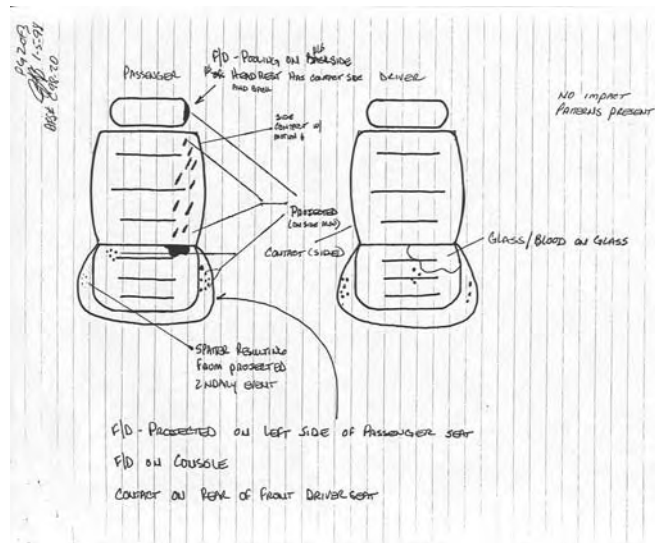 PG 2 OF 3
1-5-98
F/D - POOLING ON BACKSIDE
HEADREST HAS CONTACT SIDE
AND BACK
PASSENGER
DRIVER
NO IMPACT
PATTERNS PRESENT
SIDE
CONTACT W/
MOTION
PROJECTED
CONTACT (SIDE)
GLASS/BLOOD ON GLASS
SPATTER RESULTING
FROM PROJECTED
2NDARY EVENT
F/D - PROJECTED ON LEFT SIDE OF PASSENGER SEAT
F/D ON CONSOLE
CONTACT ON REAR OF FRONT DRIVER SEAT